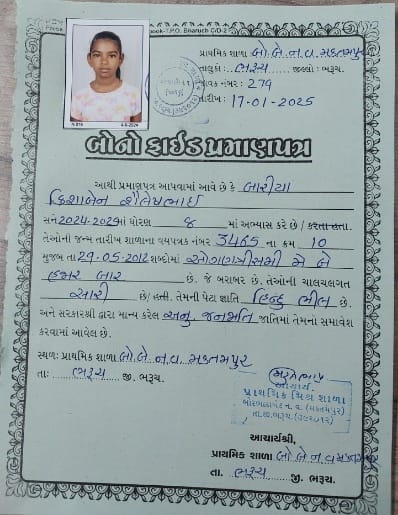 પ્રાથમિક શાળા બો.બે.ન.વ. મકતમપુર
તાલુકો : ભરૂચ જીલ્લો : ભરૂચ.
જાવક નંબર : 279
તારીખ : 17-01-2025
બોનોફાઈડ પ્રમાણપત્ર
આથી પ્રમાણપત્ર આપવામાં આવે છે કે બારીયા
શૈલેષભાઈ
સને 2024-2025માં ધોરણ ૪ માં અભ્યાસ કરે છે / કરતા હતા.
તેઓની જન્મ તારીખ શાળાના વયપત્રક નંબર 3465 ના ક્રમ 10
મુજબ તા 29-05-2012 શબ્દોમાં ઓગણત્રીસમી મે બે
હજાર બાર છે. જે બરાબર છે. તેઓની ચાલચલગત
સારી છે/ હતી. તેમની પેટા જ્ઞાતિ હિન્દુ ભીલ છે.
અને સરકારશ્રી દ્વારા માન્ય કરેલ અનુ. જનજાતિ જાતિમાં તેમનો સમાવેશ
કરવામાં આવેલ છે.
સ્થળ: પ્રાથમિક શાળા બો.બે.ન.વ. મકતમપુર
તા: ભરૂચ જી. ભરૂચ.
આચાર્ય.
પ્રાથમિક મિશ્ર શાળા
આચાર્યશ્રી,
પ્રાથમિક શાળા બો.બે.ન.વ. મકતમપુર
તા. ભરૂચ જી. ભરૂચ.